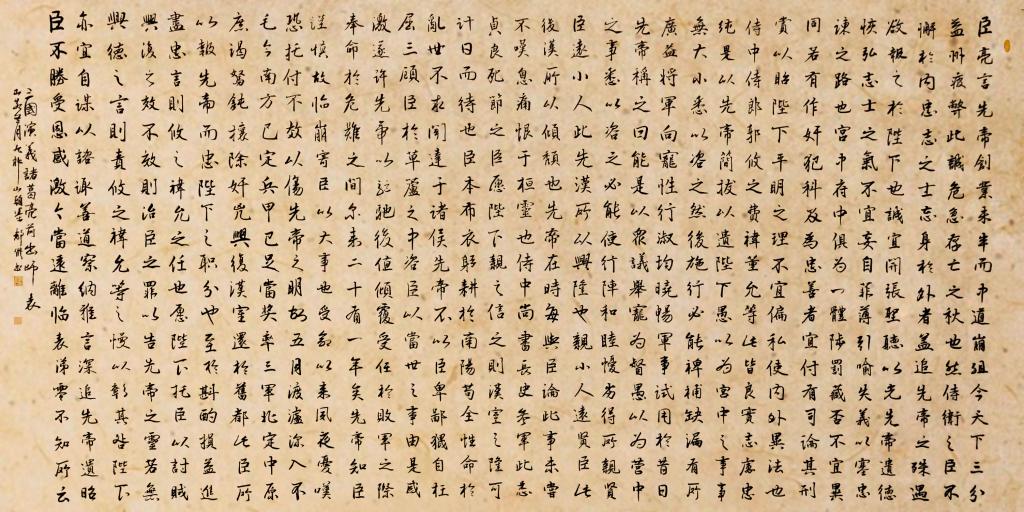 臣亮言先帝創業未半而中道崩殂今天下三分
益州疲弊此誠危急存亡之秋也然侍衛之臣不
懈於內忠志之士忘身於外者蓋追先帝之殊遇
欲報之於陛下也誠宜開張聖聽以光先帝遺德
恢弘志士之氣不宜妄自菲薄引喻失義以塞忠
諫之路也宮中府中俱為一體陟罰臧否不宜異
同若有作奸犯科及為忠善者宜付有司論其刑
賞以昭陛下平明之理不宜偏私使內外異法也
侍中侍郎郭攸之費禕董允等此皆良實志慮忠
純是以先帝簡拔以遺陛下愚以為宮中之事事
無大小悉以咨之然後施行必能裨補缺漏有所
廣益將軍向寵性行淑均曉暢軍事試用於昔日
先帝稱之曰能是以眾議舉寵為督愚以為營中
之事悉以咨之必能使行陣和睦優劣得所親賢
臣遠小人此先漢所以興隆也親小人遠賢臣此
後漢所以傾頹也先帝在時每與臣論此事未嘗
不嘆息痛恨于桓靈也侍中尚書長史參軍此悉
貞良死節之臣愿陛下親之信之則漢室之隆可
計日而待也臣本布衣躬耕於南陽苟全性命於
亂世不求聞達于諸侯先帝不以臣卑鄙猥自枉
屈三顧臣於草廬之中咨臣以當世之事由是感
激遂許先帝以驅馳後值傾覆受任於敗軍之際
奉命於危難之間尔來二十有一年矣先帝知臣
謹慎故臨崩寄臣以大事也受命以來夙夜憂嘆
恐托付不效以傷先帝之明故五月渡瀘深入不
毛今南方已定兵甲已足當獎率三軍北定中原
庶竭駑鈍攘除奸兇興復漢室還於舊都此臣所
以報先帝而忠陛下之職分也至於斟酌損益進
盡忠言則攸之禕允之任也愿陛下托臣以討賊
興復之效不效則治臣之罪以告先帝之靈若無
興德之言則責攸之禕允等之慢以彰其咎陛下
亦宜自謀以諮諏善道察納雅言深追先帝遺詔
臣不勝受恩感激今當遠離臨表涕零不知所云
三國演義諸葛亮前出師表